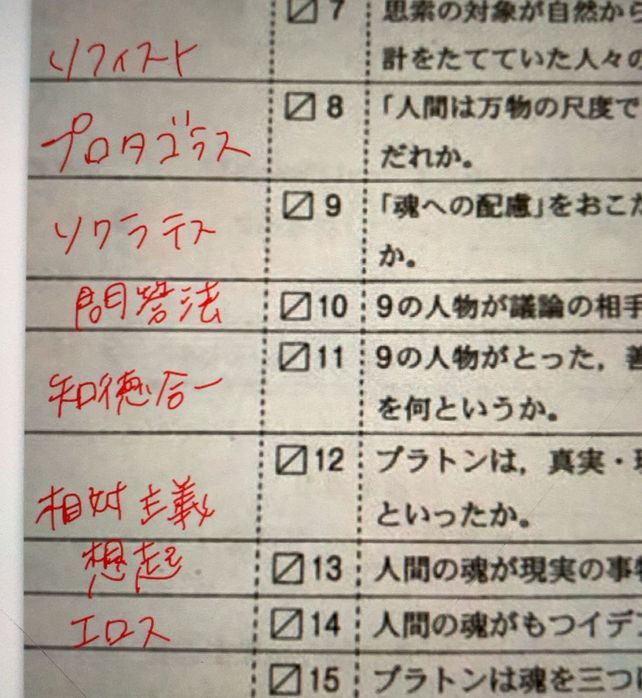 7 思索の対象が自然から
ソフィスト 計をたてていた人々の
8 「人間は万物の尺度で
プロタゴラス だれか。
9 「魂への配慮」をおこた
ソクラテス か。
問答法 10 9の人物が議論の相手
11 9の人物がとった，善
知徳合一 を何というか。
12 プラトンは，真実・
相対主義 といったか。
想起 13 人間の魂が現実の事物
エロス 14 人間の魂がもつイデ
15 プラトンは魂を三つ